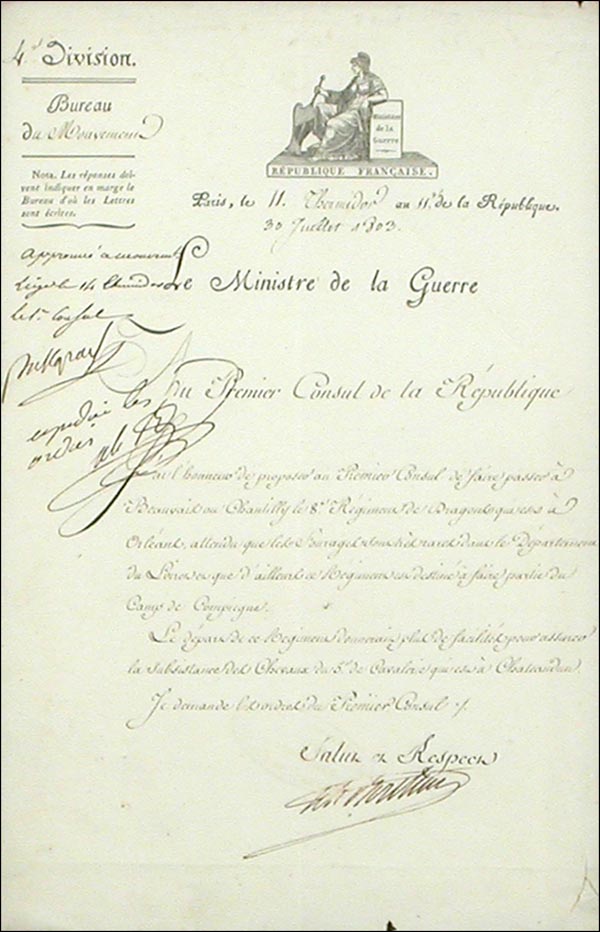 4e. Division.
Bureau
du Mouvement
Nota. Les réponses doi-
vent indiquer en marge le
Bureau d'où les Lettres
sont écrites.
Ministère
de la
Guerre
RÉPUBLIQUE FRANÇAISE.
Paris, le 11. Thermidor an 11e. de la République.
30 Juillet 1803.
approuvé ce mouvement
Liège le 14 Thermidor
le 1er. Consul
Le Ministre de la Guerre
Au Premier Consul de la République
expédié les
ordres
J'ai l'honneur de proposer au Premier Consul de faire passer à
Beauvais ou Chantilly le 8e. Régiment de Dragons qui est à
Orléans, attendu que les fourrages sont très rares dans le Département
du Loiret et que d'ailleurs ce Régiment est destiné à faire partie du
Camp de Compiegne.
Le départ de ce Régiment donnerait plus de facilités pour assurer
la subsistance des Chevaux du 5e. de Cavalerie qui est à Chateaudun.
Je demande les ordres du Premier Consul ./.
Salut et Respect